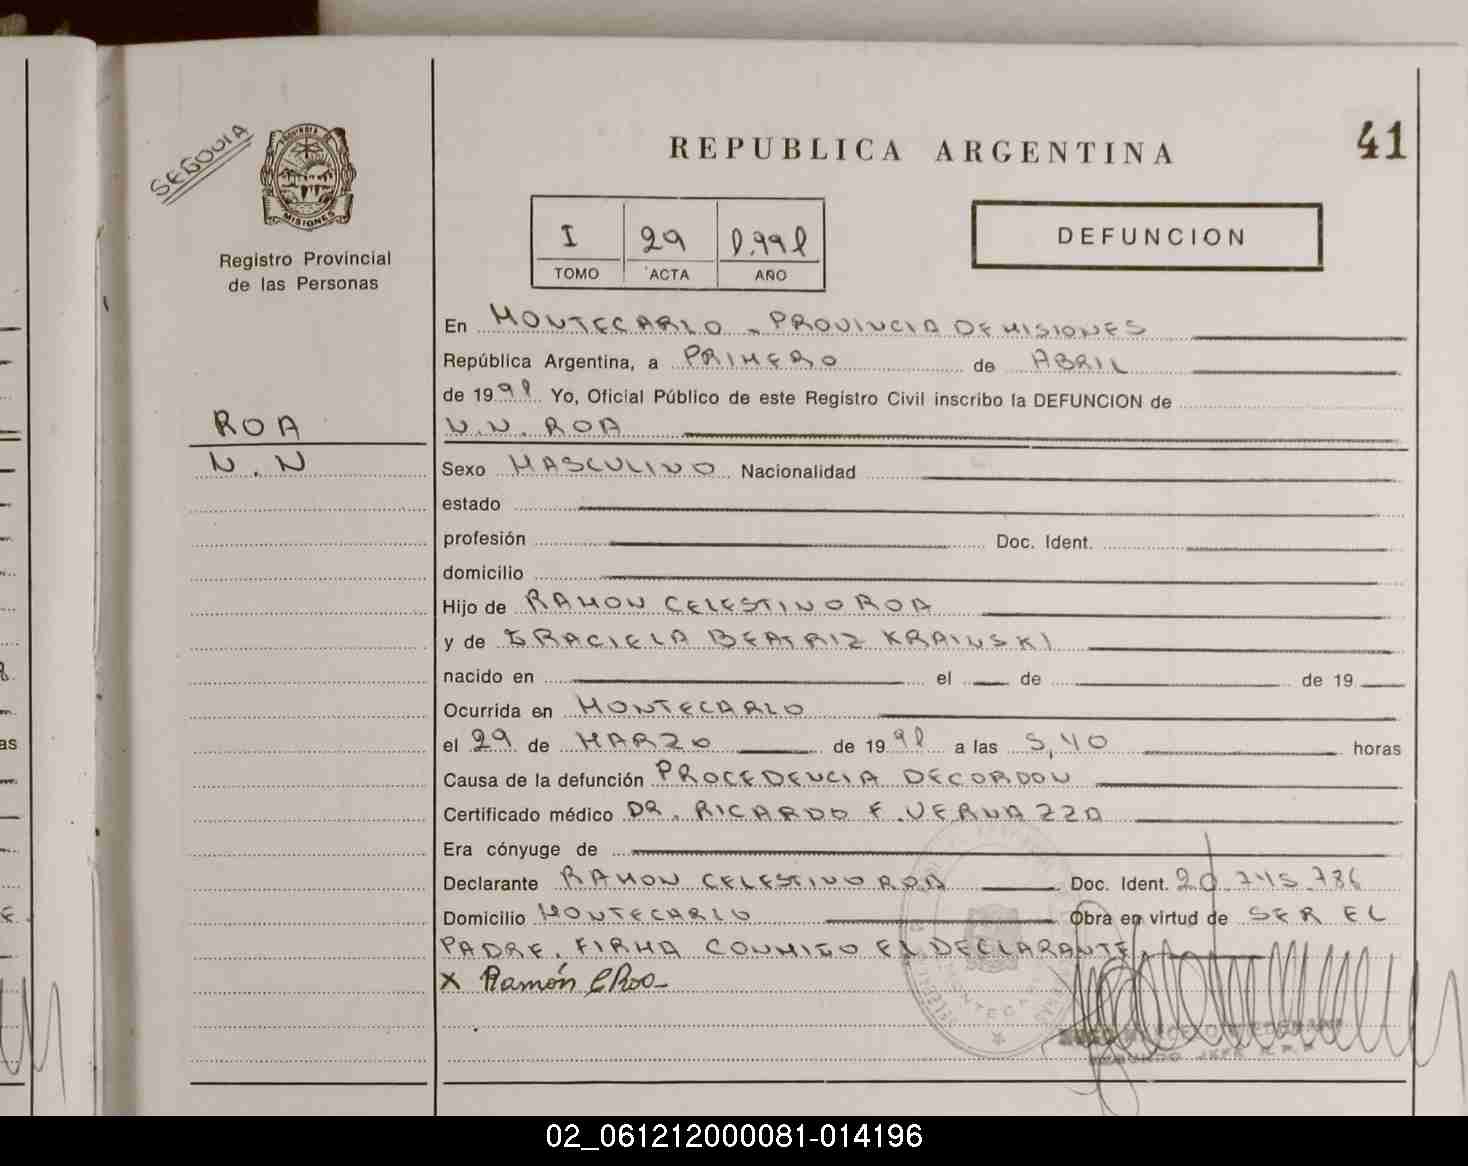 SEGOVIA
PROVINCIA DE
MISIONES
Registro Provincial
de las Personas
REPUBLICA ARGENTINA
41
I 29 1.991
TOMO ACTA AÑO
DEFUNCION
En MONTECARLO - PROVINCIA DE MISIONES
República Argentina, a PRIMERO de ABRIL
de 1991 Yo, Oficial Público de este Registro Civil inscribo la DEFUNCION de
ROA
N.N. ROA
N.N
Sexo MASCULINO Nacionalidad
estado
profesión Doc. Ident.
domicilio
Hijo de RAMON CELESTINO ROA
y de GRACIELA BEATRIZ KRAINSKI
nacido en el de de 19
Ocurrida en MONTECARLO
el 29 de MARZO de 1991 a las 5,40 horas
Causa de la defunción PROCEDENCIA DECORDON
Certificado médico DR. RICARDO F. VERNAZZA
Era cónyuge de
Declarante RAMON CELESTINO ROA Doc. Ident. 20.745.736
Domicilio MONTECARLO Obra en virtud de SER EL
PADRE. FIRMA CONMIGO EL DECLARANTE
X Ramón C Roa
02_061212000081-014196